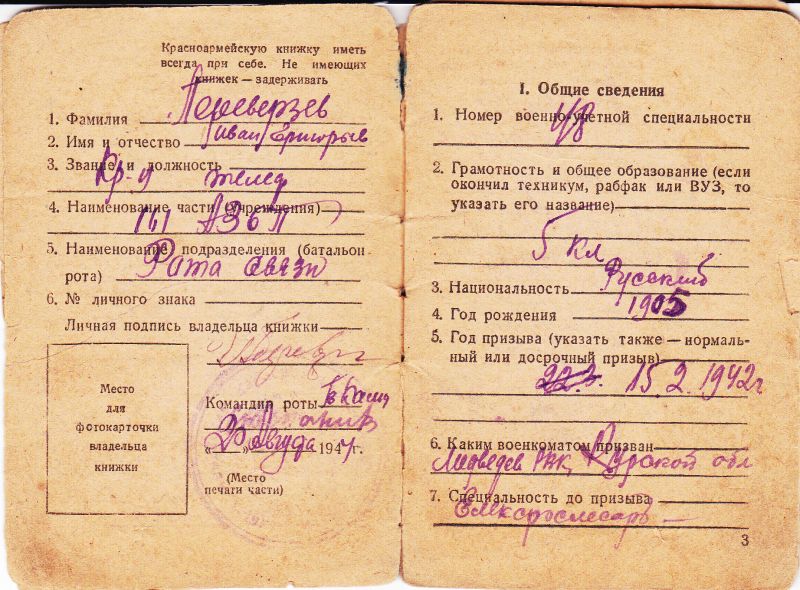 Красноармейскую книжку иметь
всегда при себе. Не имеющих
книжек — задерживать
1. Фамилия Переверзев
2. Имя и отчество Иван Григорьев
3. Звание и должность
Кр-ц телеф
4. Наименование части (учреждения)
141 АЗСП
5. Наименование подразделения (батальон
рота) Рота связи
6. № личного знака
Личная подпись владельца книжки
Место
для
фотокарточки
владельца
книжки
Командир роты
„20" Августа 1944г.
(Место
печати части)
I. Общие сведения
1. Номер военно-учетной специальности
48
2. Грамотность и общее образование (если
окончил техникум, рабфак или ВУЗ, то
указать его название)
5 кл
3. Национальность Русский
4. Год рождения 1905
5. Год призыва (указать также — нормаль-
ный или досрочный призыв)
15.2.1942г
6. Каким военкоматом призван
РВК, Курской обл
7. Специальность до призыва
Електрослесарь —
3